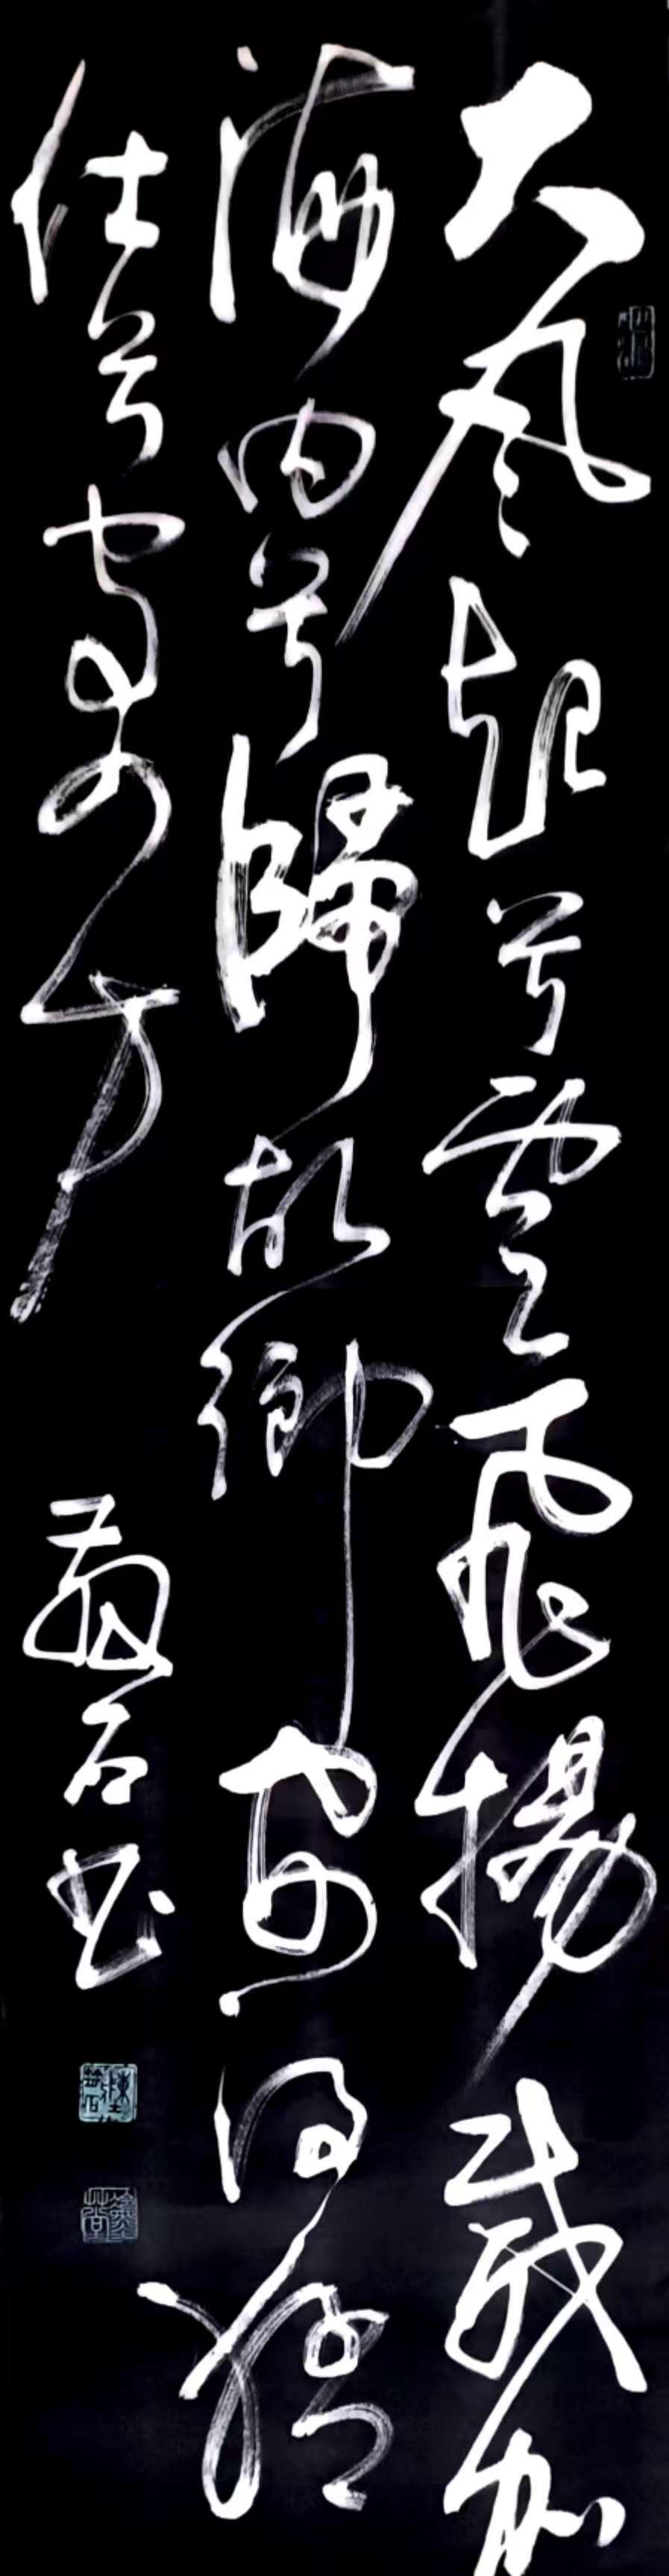 大風起兮雲飛揚威加
海内兮歸故鄉安得猛
仕兮守四方
石书